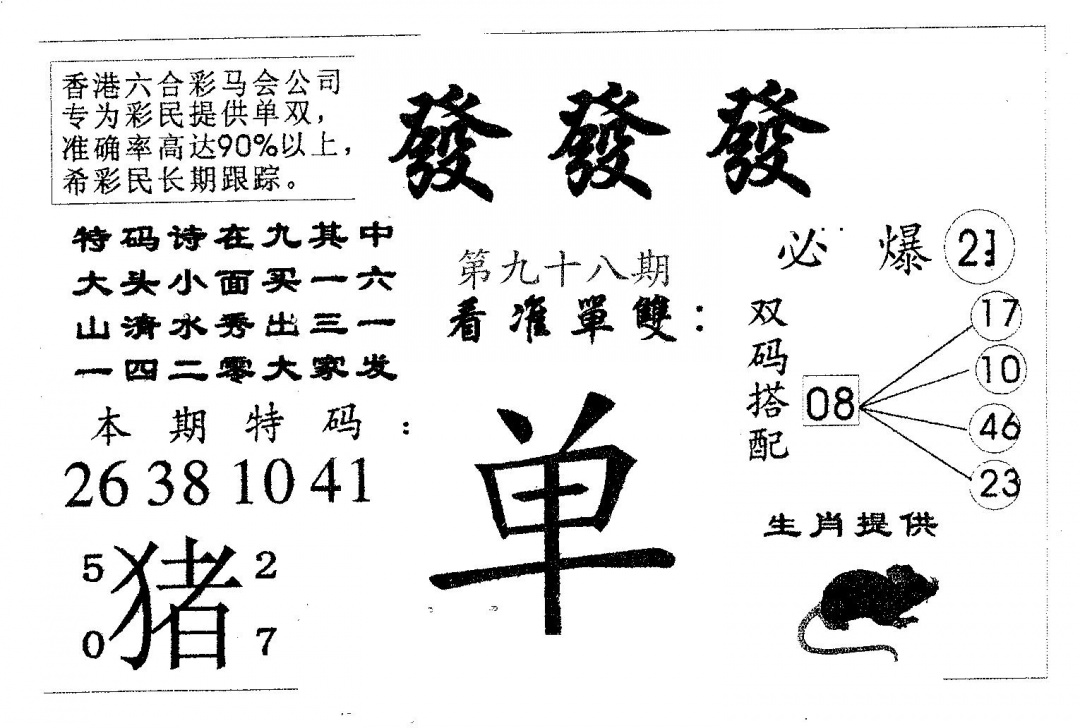 香港六合彩马会公司
专为彩民提供单双,
准确率高达90%以上,
希彩民长期跟踪。
發發發
特码诗在九其中
大头小面买一六
山清水秀出三一
一四二零大家发
第九十八期
看准單雙:
必爆
双码搭配
08
17
10
46
23
本期特码:
26 38 10 41
单
生肖提供
5 猪 2
0 7